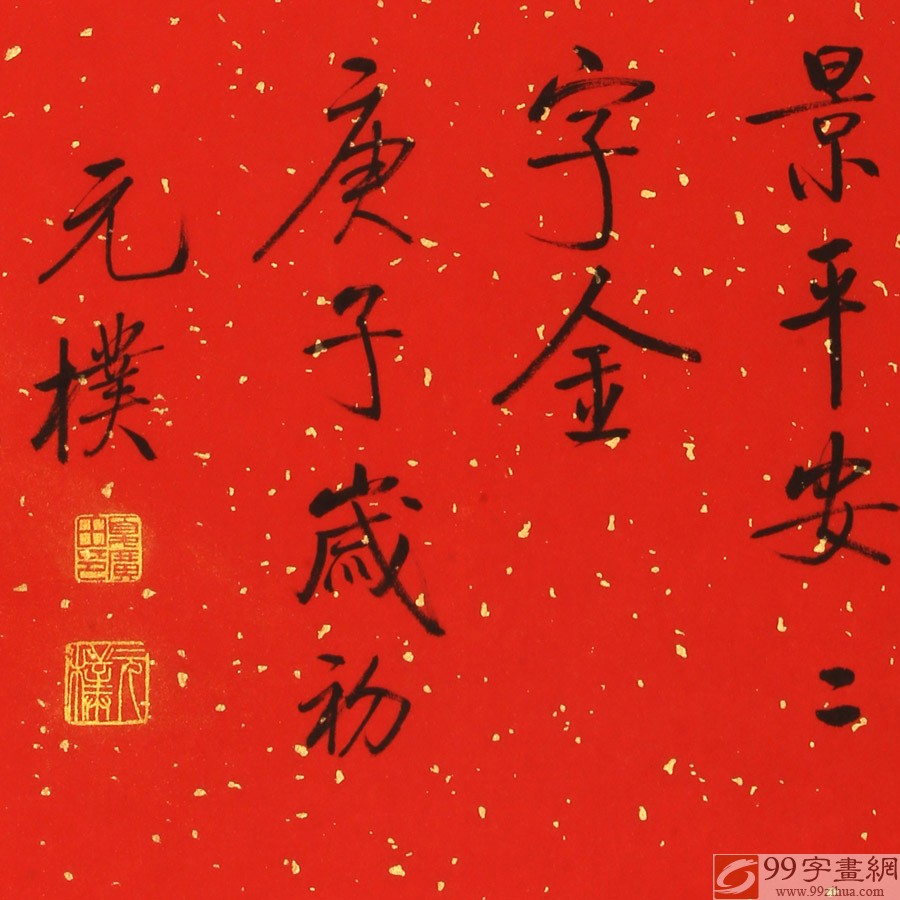 景平安二
字金
庚子歲初
元樸
元樸
99字畫網
www.99zihua.com